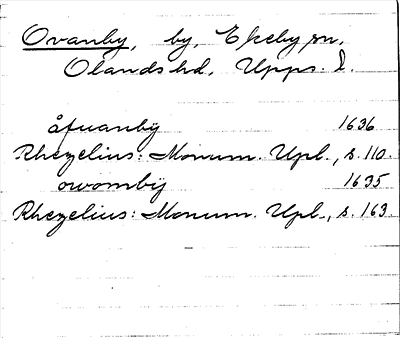 Ovanby, by, Ekeby sn,
Olands hd, Upps. l.
åfuanbÿ 1636
Rhezelius: Monum. Upl., s. 110.
owombÿ 1635
Rhezelius: Monum. Upl., s. 163.